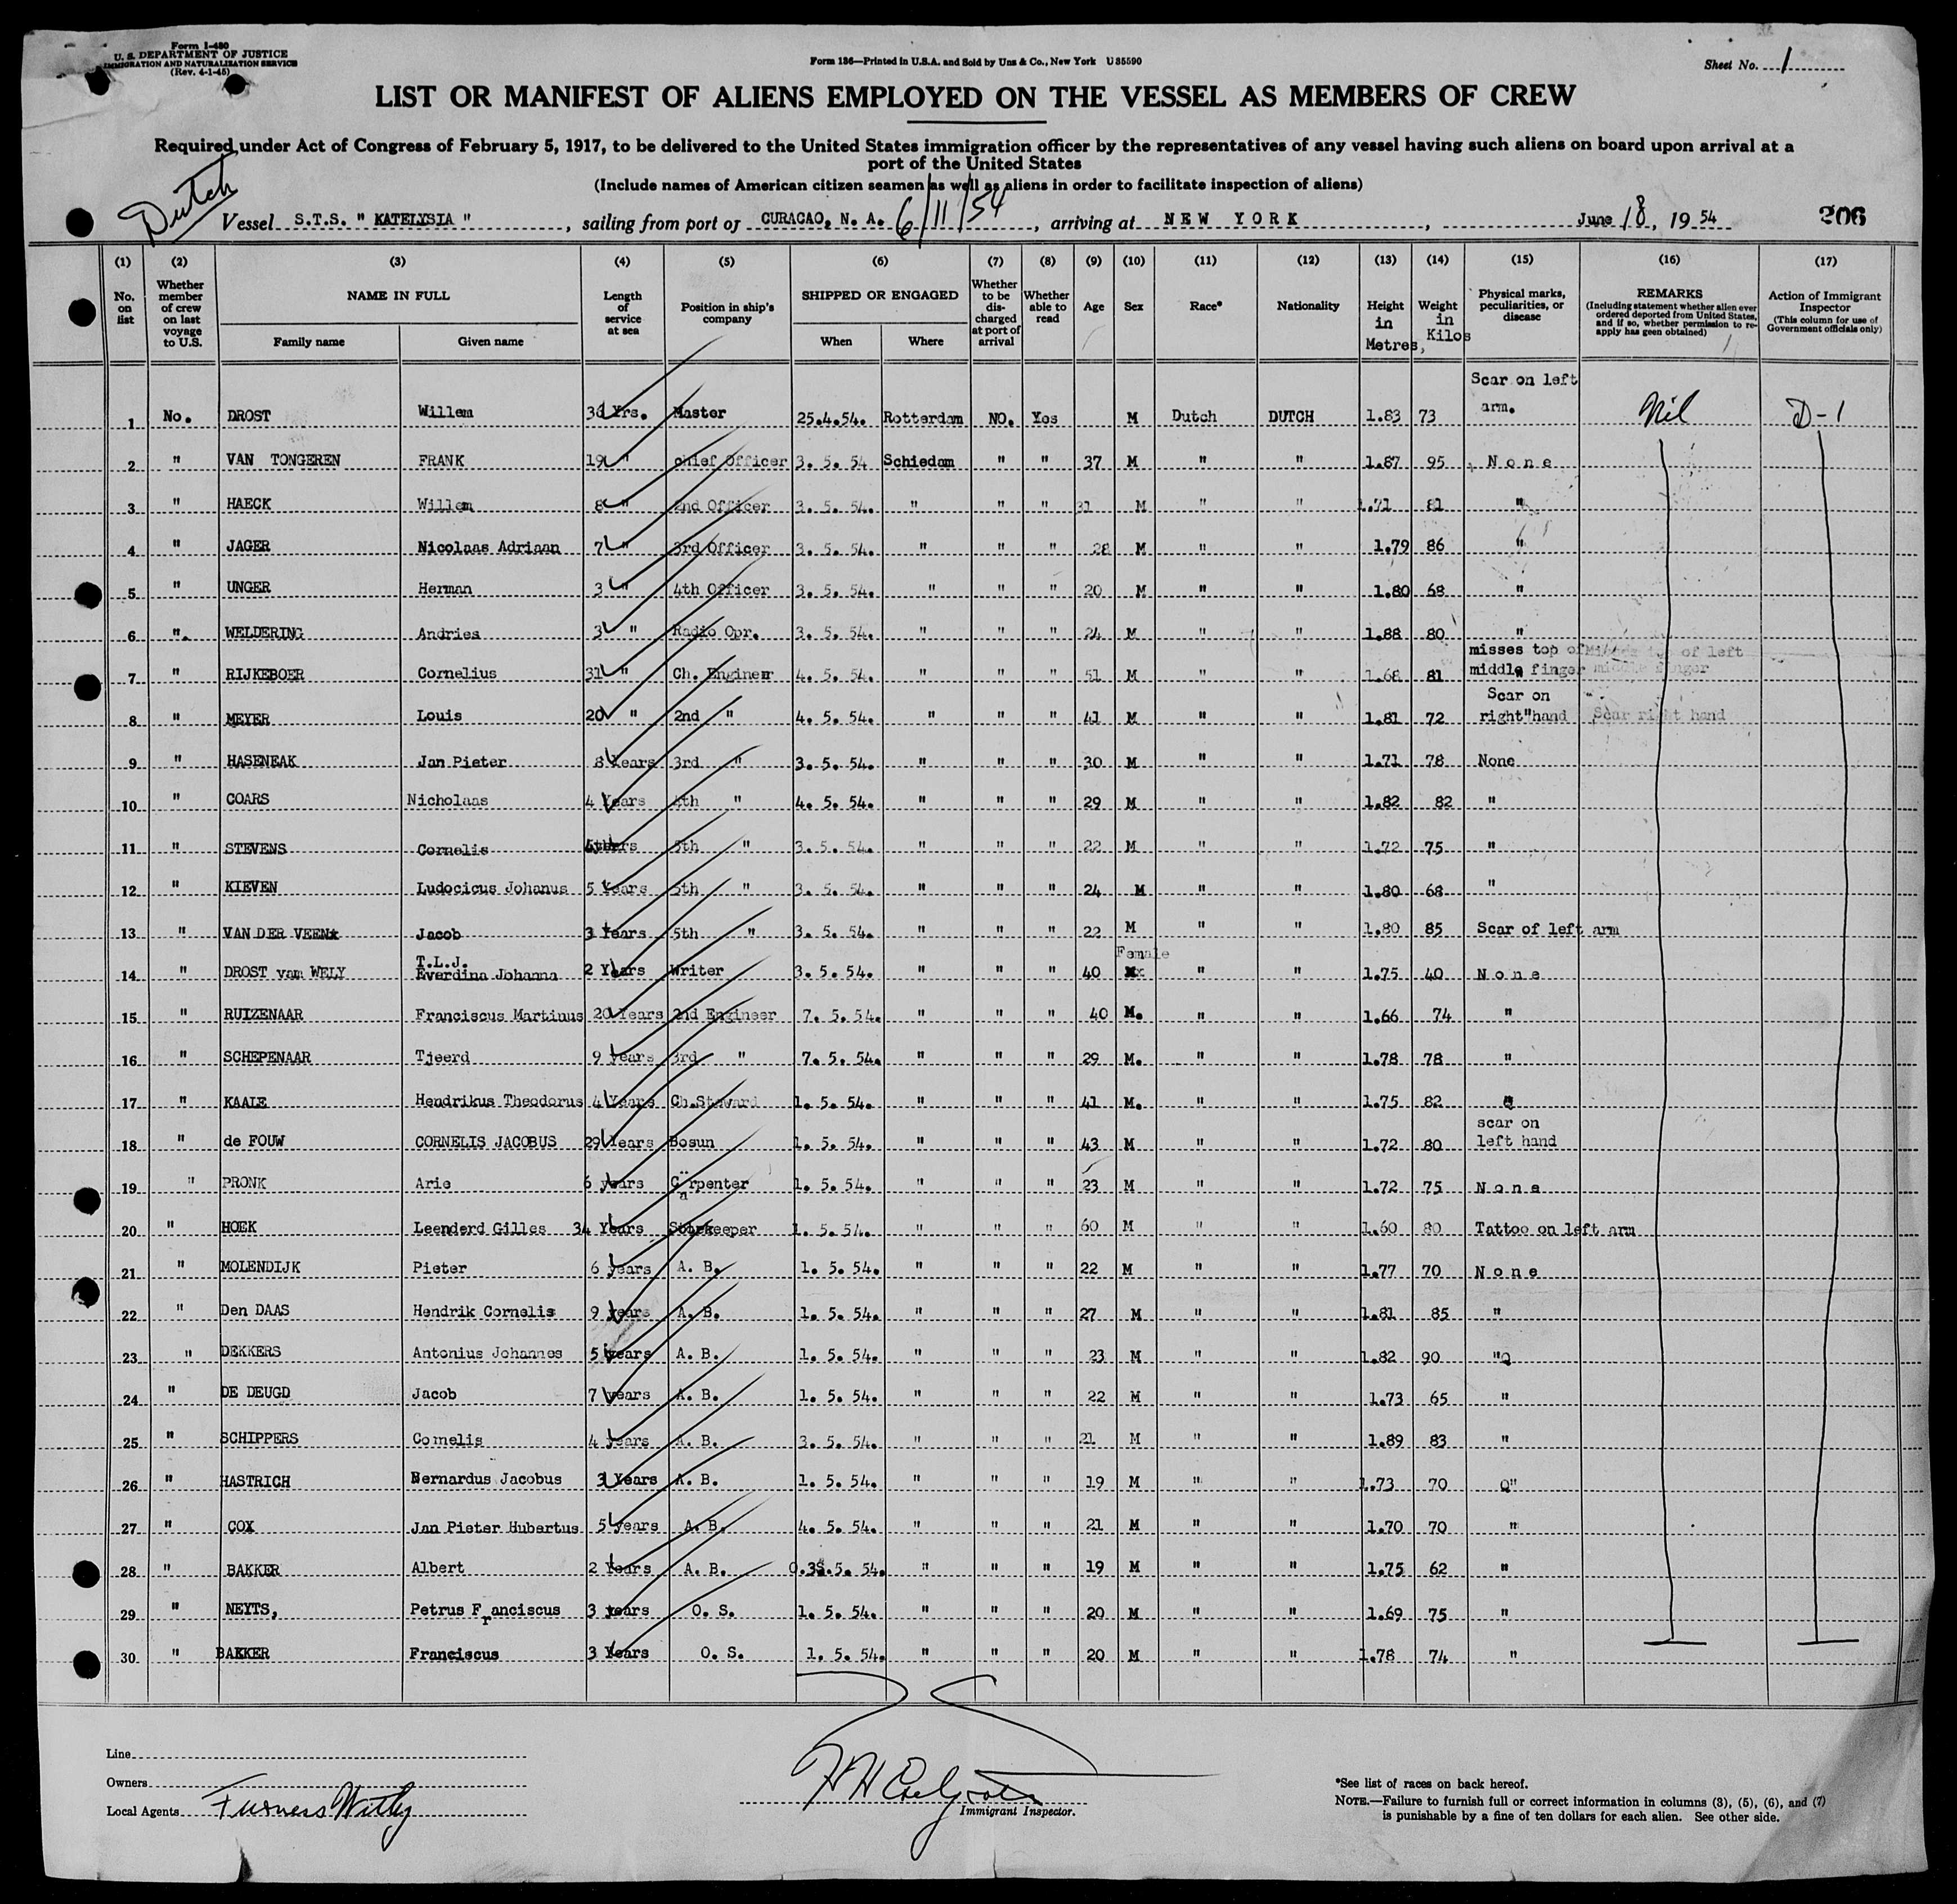 Form I-480
U. S. DEPARTMENT OF JUSTICE
IMMIGRATION AND NATURALIZATION SERVICE
(Rev. 4-1-45)
Form 186—Printed in U.S.A. and Sold by Unz & Co., New York U 35590
Sheet No. 1
LIST OR MANIFEST OF ALIENS EMPLOYED ON THE VESSEL AS MEMBERS OF CREW
Required under Act of Congress of February 5, 1917, to be delivered to the United States immigration officer by the representatives of any vessel having such aliens on board upon arrival at a
port of the United States
(Include names of American citizen seamen as well as aliens in order to facilitate inspection of aliens)
Dutch
Vessel S.T.S. " KATELYSIA ", sailing from port of CURACAO, N. A. 6/11/54, arriving at NEW YORK, June 18, 19 54 206
(1) (2) (3) (4) (5) (6) (7) (8) (9) (10) (11) (12) (13) (14) (15) (16) (17)
No. on list
Whether member of crew on last voyage to U.S.
NAME IN FULL
Family name Given name
Length of service at sea
Position in ship's company
SHIPPED OR ENGAGED
When Where
Whether to be discharged at port of arrival
Whether able to read
Age
Sex
Race*
Nationality
Height in Metres,
Weight in Kilos
Physical marks, peculiarities, or disease
REMARKS
(Including statement whether alien ever ordered deported from United States, and if so, whether permission to re-apply has geen obtained)
Action of Immigrant Inspector
(This column for use of Government officials only)
1 No. DROST Willem Yrs. Master 25.4.54. Rotterdam NO. Yes M Dutch DUTCH 1.83 73 Scar on left arm. Nil D-1
2 " VAN TONGEREN FRANK 19 " chief Officer 3. 5. 54 Schiedam " " 37 M " " 1.87 95 None
3 " HAECK Willem 8 " 2nd Officer 3. 5. 54. " " " 31 M " " 1.71 81 "
4 " JAGER Nicolaas Adriaan 7 " 3rd Officer 3. 5. 54. " " " 28 M " " 1.79 86 "
5 " UNGER Herman 3 " 4th Officer 3. 5. 54. " " " 20 M " " 1.80 68 "
6 ". WELDERING Andries 3 " Radio Opr. 3. 5. 54. " " " 24 M " " 1.88 80 "
7 " RIJKEBOER Cornelius 31 " Ch. Engineer 4. 5. 54. " " " 51 M " " 1.68 81 misses top of middle finger of left middle finger
8 " MEYER Louis 20 " 2nd " 4. 5. 54. " " " 41 M " " 1.81 72 Scar on right"hand Scar right hand
9 " HASENEAK Jan Pieter 8 Years 3rd " 3. 5. 54. " " " 30 M " " 1.71 78 None
10 " COARS Nicholaas 4 Years 4th " 4. 5. 54. " " " 29 M " " 1.82 82 "
11 " STEVENS Cornelis 5th " 3. 5. 54. " " " 22 M " " 1.72 75 "
12 " KIEVEN Ludocicus Johanus 5 Years 5th " 3. 5. 54. " " " 24 M " " 1.80 68 "
13 " VAN DER VEEN Jacob 3 Years 5th " 3. 5. 54. " " " 22 M " " 1.80 85 Scar of left arm
14 " DROST van WELY T.L.J. Everdina Johanna 2 Years Writer 3. 5. 54. " " " 40 Female " " 1.75 40 None
15 " RUIZENAAR Franciscus Martinus 20 Years 2nd Engineer 7. 5. 54. " " " 40 M. " " 1.66 74 "
16 " SCHEPENAAR Tjeerd 9 years 3rd " 7. 5. 54. " " " 29 M. " " 1.78 78 "
17 " KAALE Hendrikus Theodorus 4 Years Ch.Steward 1. 5. 54. " " " 41 M. " " 1.75 82 "
18 " de FOUW CORNELIS JACOBUS 29 Years Bosun 1. 5. 54. " " " 43 M " " 1.72 80 scar on left hand
19 " PRONK Arie 6 years Carpenter 1. 5. 54. " " " 23 M " " 1.72 75 None
20 " HOEK Leenderd Gilles 34 Years Storekeeper 1. 5. 54. " " " 60 M " " 1.60 80 Tattoo on left arm
21 " MOLENDIJK Pieter 6 years A. B. 1. 5. 54. " " " 22 M " " 1.77 70 None
22 " Den DAAS Hendrik Cornelis 9 years A. B. 1. 5. 54. " " " 27 M " " 1.81 85 "
23 " DEKKERS Antonius Johannes 5 years A. B. 1. 5. 54. " " " 23 M " " 1.82 90 "
24 " DE DEUGD Jacob 7 years A. B. 1. 5. 54. " " " 22 M " " 1.73 65 "
25 " SCHIPPERS Cornelis 4 years A. B. 3. 5. 54. " " " 21 M " " 1.89 83 "
26 " HASTRICH Bernardus Jacobus 3 Years A. B. 1. 5. 54. " " " 19 M " " 1.73 70 "
27 " COX Jan Pieter Hubertus 5 years A. B. 4. 5. 54. " " " 21 M " " 1.70 70 "
28 " BAKKER Albert 2 Years A. B. 5. 54. " " " 19 M " " 1.75 62 "
29 " NEYTS, Petrus Franciscus 3 years O. S. 1. 5. 54. " " " 20 M " " 1.69 75 "
30 " BAKKER Franciscus 3 Years O. S. 1. 5. 54. " " " 20 M " " 1.78 74 "
Line
Owners
Local Agents Furness Withy
Immigrant Inspector.
*See list of races on back hereof.
NOTE.—Failure to furnish full or correct information in columns (3), (5), (6), and (7)
is punishable by a fine of ten dollars for each alien. See other side.